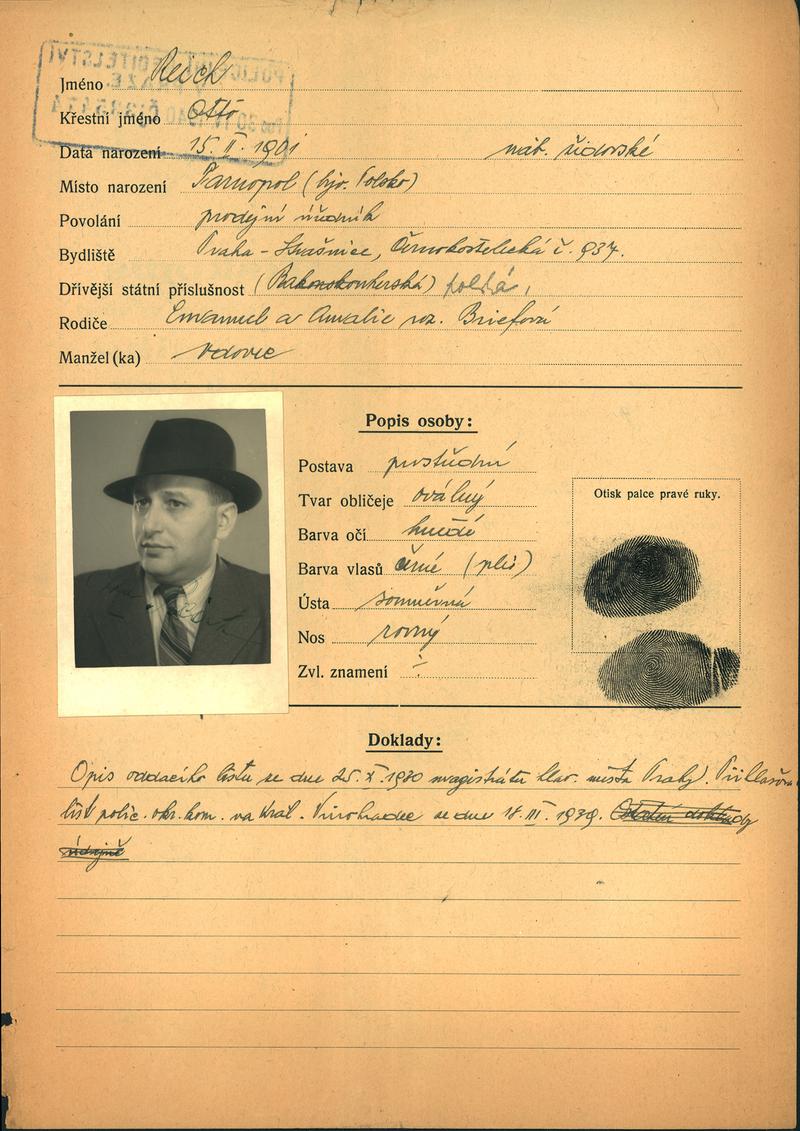 POLICEJNÍ ŘEDITELSTVÍ
V PRAZE.
Jméno Reich
Křestní jméno Otto
Data narození 15. II. 1901 náb. židovské
Místo narození Tarnopol (býv. Polsko)
Povolání prodejní úředník
Bydliště Praha - Strašnice, Černokostelecká č. 937.
Dřívější státní příslušnost polská,
Rodiče Emanuel a Amalie roz. Briefová
Manžel (ka) vdovec
Popis osoby:
Postava prostřední
Tvar obličeje oválný
Barva očí hnědé
Barva vlasů černé (pleš)
Ústa souměrná
Nos rovný
Zvl. znamení
Otisk palce pravé ruky.
Doklady:
Opis oddacího listu ze dne 25. X. 1930 magistrátu hlav. města Prahy. Přihlašov.
list polic. okr. kom. na Král. Vinohradech ze dne III. 1939. Ostatní doklady
údajně